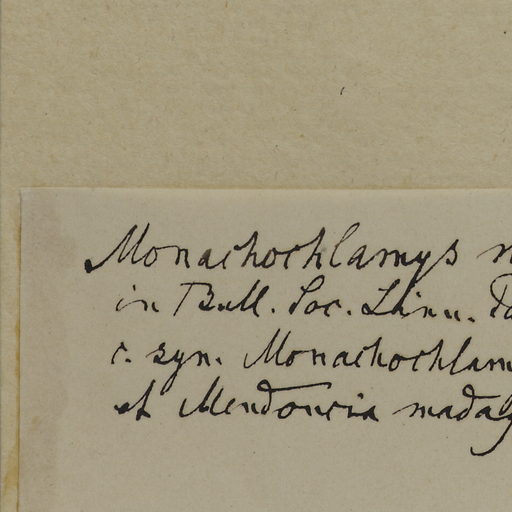 Monachochlamys
in Bull. Soc. Linn.
c. syn. Monachochlam
et Mendoncia madag